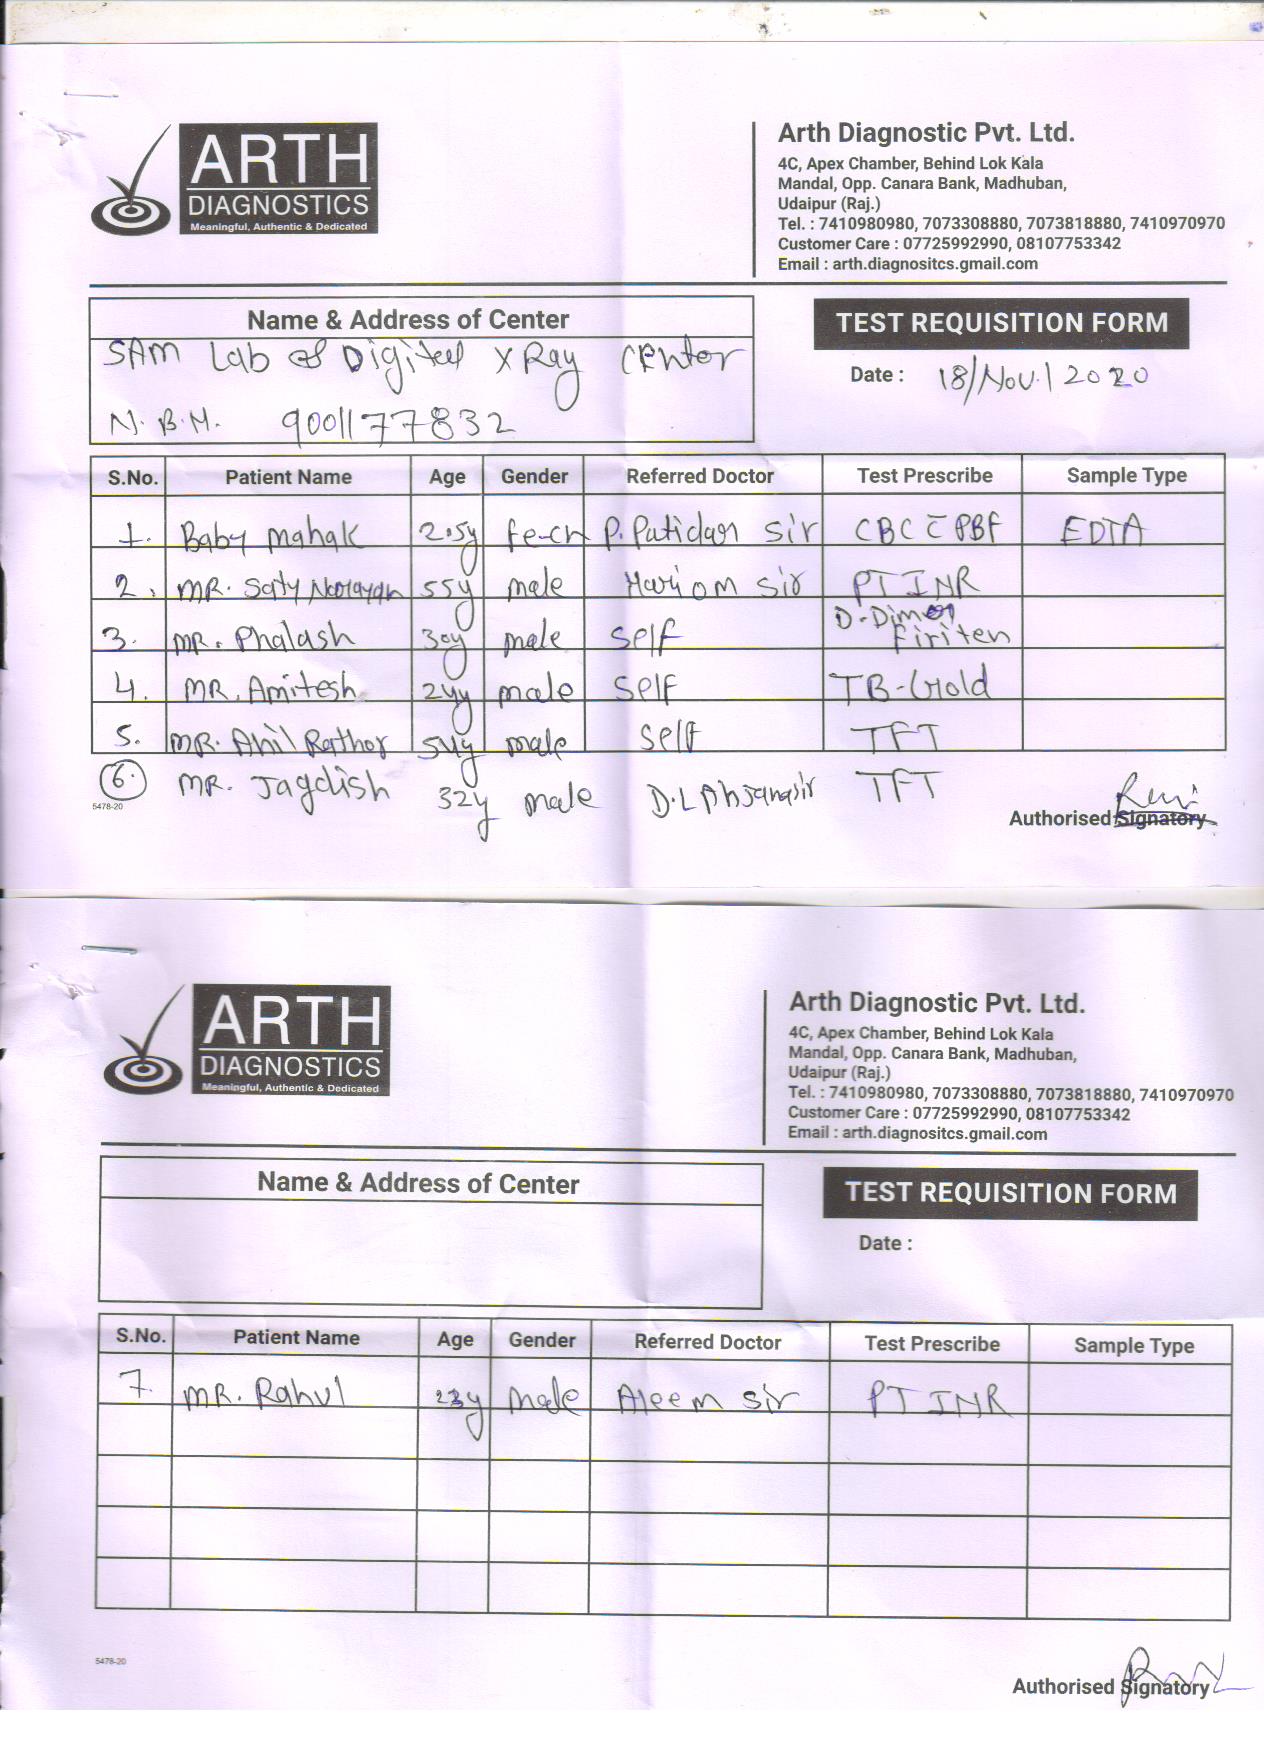 ARTH
DIAGNOSTICS
Meaningful, Authentic & Dedicated
Arth Diagnostic Pvt. Ltd.
4C, Apex Chamber, Behind Lok Kala
Mandal, Opp. Canara Bank, Madhuban,
Udaipur (Raj.)
Tel. : 7410980980, 7073308880, 7073818880, 7410970970
Customer Care : 07725992990, 08107753342
Email : arth.diagnositcs.gmail.com
Name & Address of Center
SAM Lab & Digital X Ray Center
N.B.H. 9001177832
TEST REQUISITION FORM
Date : 18/Nov./2020
S.No. Patient Name Age Gender Referred Doctor Test Prescribe Sample Type
1. Baby Mahak 2.5y P. Patidar sir CBC c̄ PBF EDTA
2. MR. Saty Narayan 55y male Hariom sir PT INR
3. MR. Phalash 30y male Self D-Dimer Firiten
4. MR. Amitesh 24y male Self TB-Gold
5. MR. Anil Rathor 54y male Self TFT
6. MR. Jagdish 32y male D.L TFT
5478-20
Authorised Signatory
ARTH
DIAGNOSTICS
Meaningful, Authentic & Dedicated
Arth Diagnostic Pvt. Ltd.
4C, Apex Chamber, Behind Lok Kala
Mandal, Opp. Canara Bank, Madhuban,
Udaipur (Raj.)
Tel. : 7410980980, 7073308880, 7073818880, 7410970970
Customer Care : 07725992990, 08107753342
Email : arth.diagnositcs.gmail.com
Name & Address of Center
TEST REQUISITION FORM
Date :
S.No. Patient Name Age Gender Referred Doctor Test Prescribe Sample Type
7. MR. Rahul 23y Male Aleem sir PT INR
5478-20
Authorised Signatory